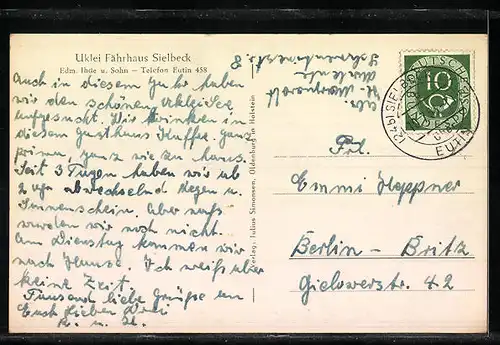 Uklei Fährhaus Sielbeck
Edm. Ihde u. Sohn – Telefon Eutin 458
Auch in diesem Jahr haben
wir den schönen Ukleisee
aufgesucht. Wir trinken in
diesem Gasthaus Kaffee. Ganz
prima, ganz wie zu Haus.
Seit 3 Tagen haben wir ab
wechselnd Regen u.
Sonnenschein. Aber nass
wurden wir noch nicht.
Am Dienstag kommen wir
nach Hause. Ich weiß aber
keine Zeit.
Tausend liebe Grüße an
Euch Lieben Drei
Verlag: Julius Simonsen, Oldenburg in Holstein
DEUTSCHE BUNDESPOST
10
(24b) SIELBECK
EUTIN
Frl.
Emmi Heppner
Berlin – Britz
Gielowerstr. 42